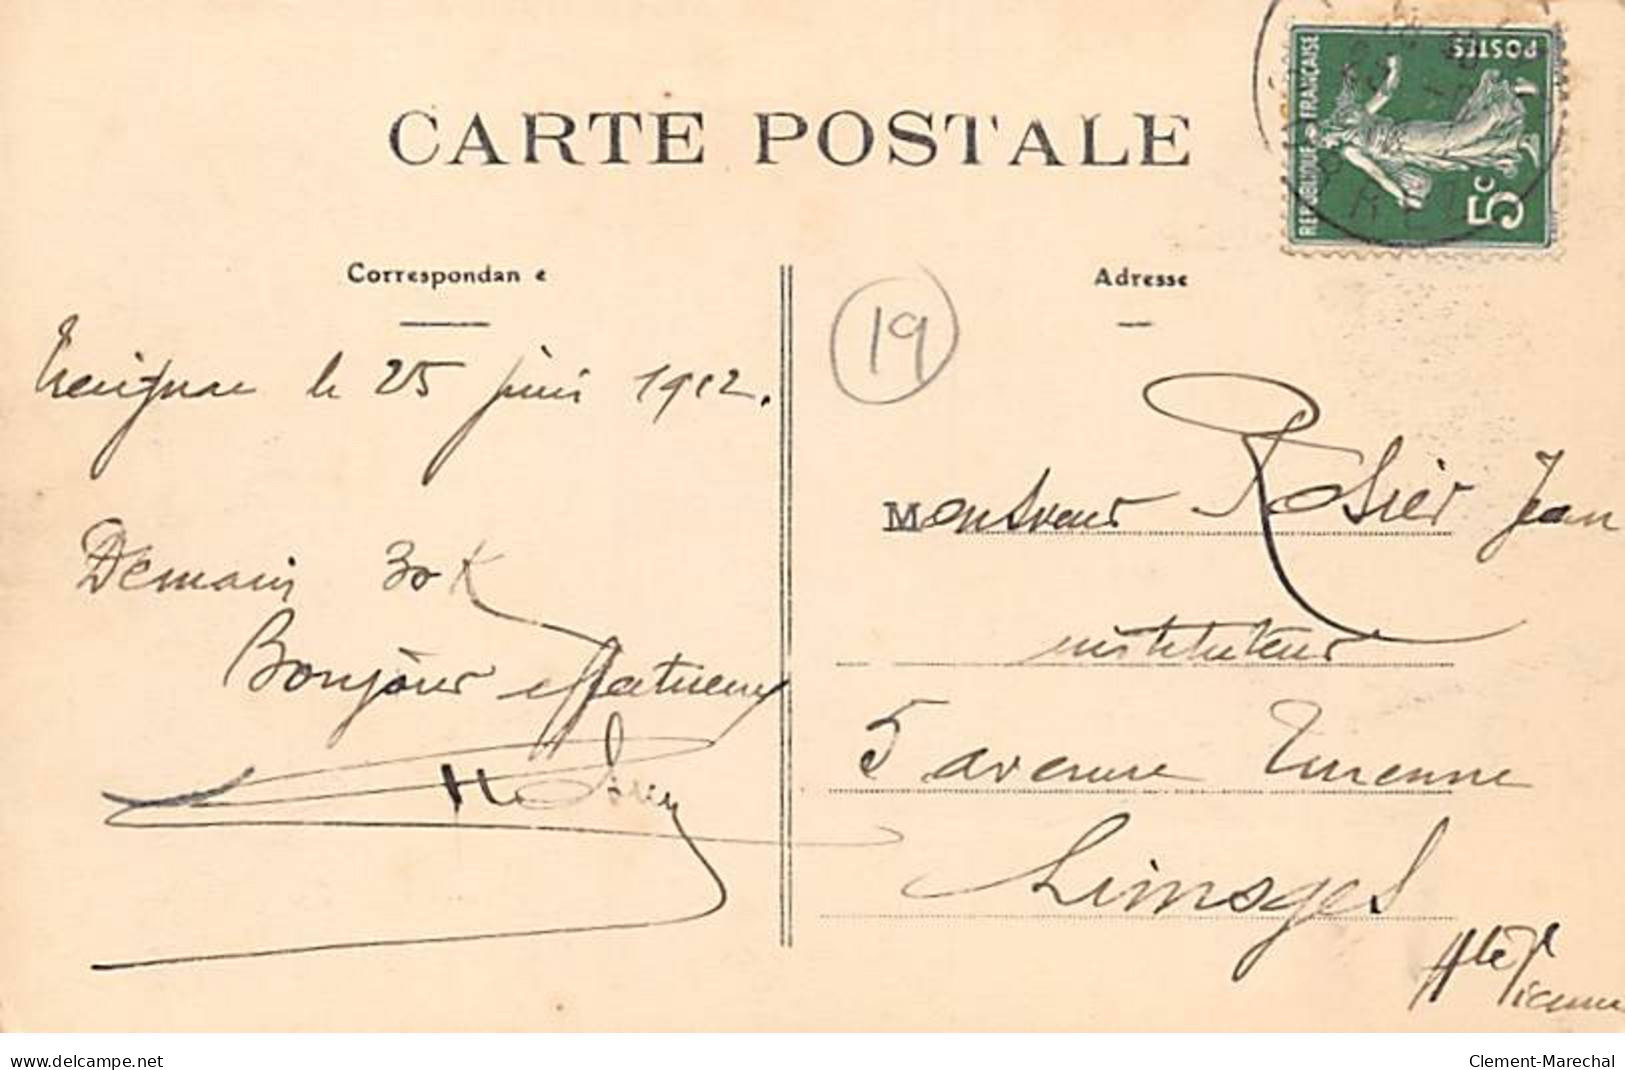 CARTE POSTALE
REPUBLIQUE FRANÇAISE
POSTES
5c
Correspondan e
Adresse
19
Treignac le 25 juin 1912.
Monsieur Rosier Jean
Demain 30 K
instituteur
Bonjour affectueux
5 avenue Turenne
Limoges
Hte Vienne
www.delcampe.net
Clement-Marechal